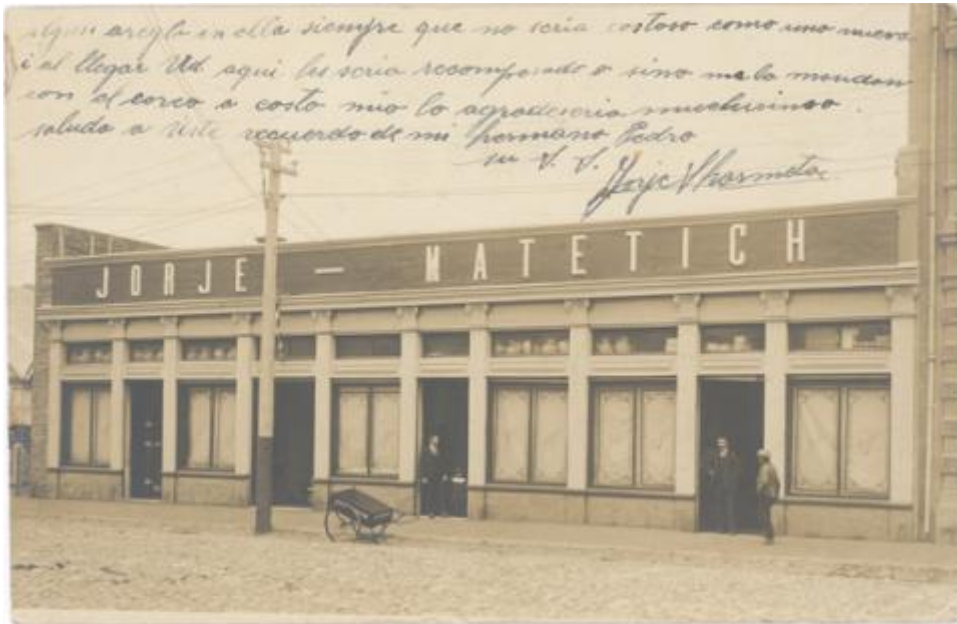 algun areglo en ella siempre que no seria costoso como uno nuevo
i al llegar Ud. aqui le seria recompensado o sino me la mandan
con el correo a costo mio lo agradeseria muchisimo.
saludo a Uste recuerdo de mi hermano Pedro
su S. S.
Jorje
JORJE — MATETICH